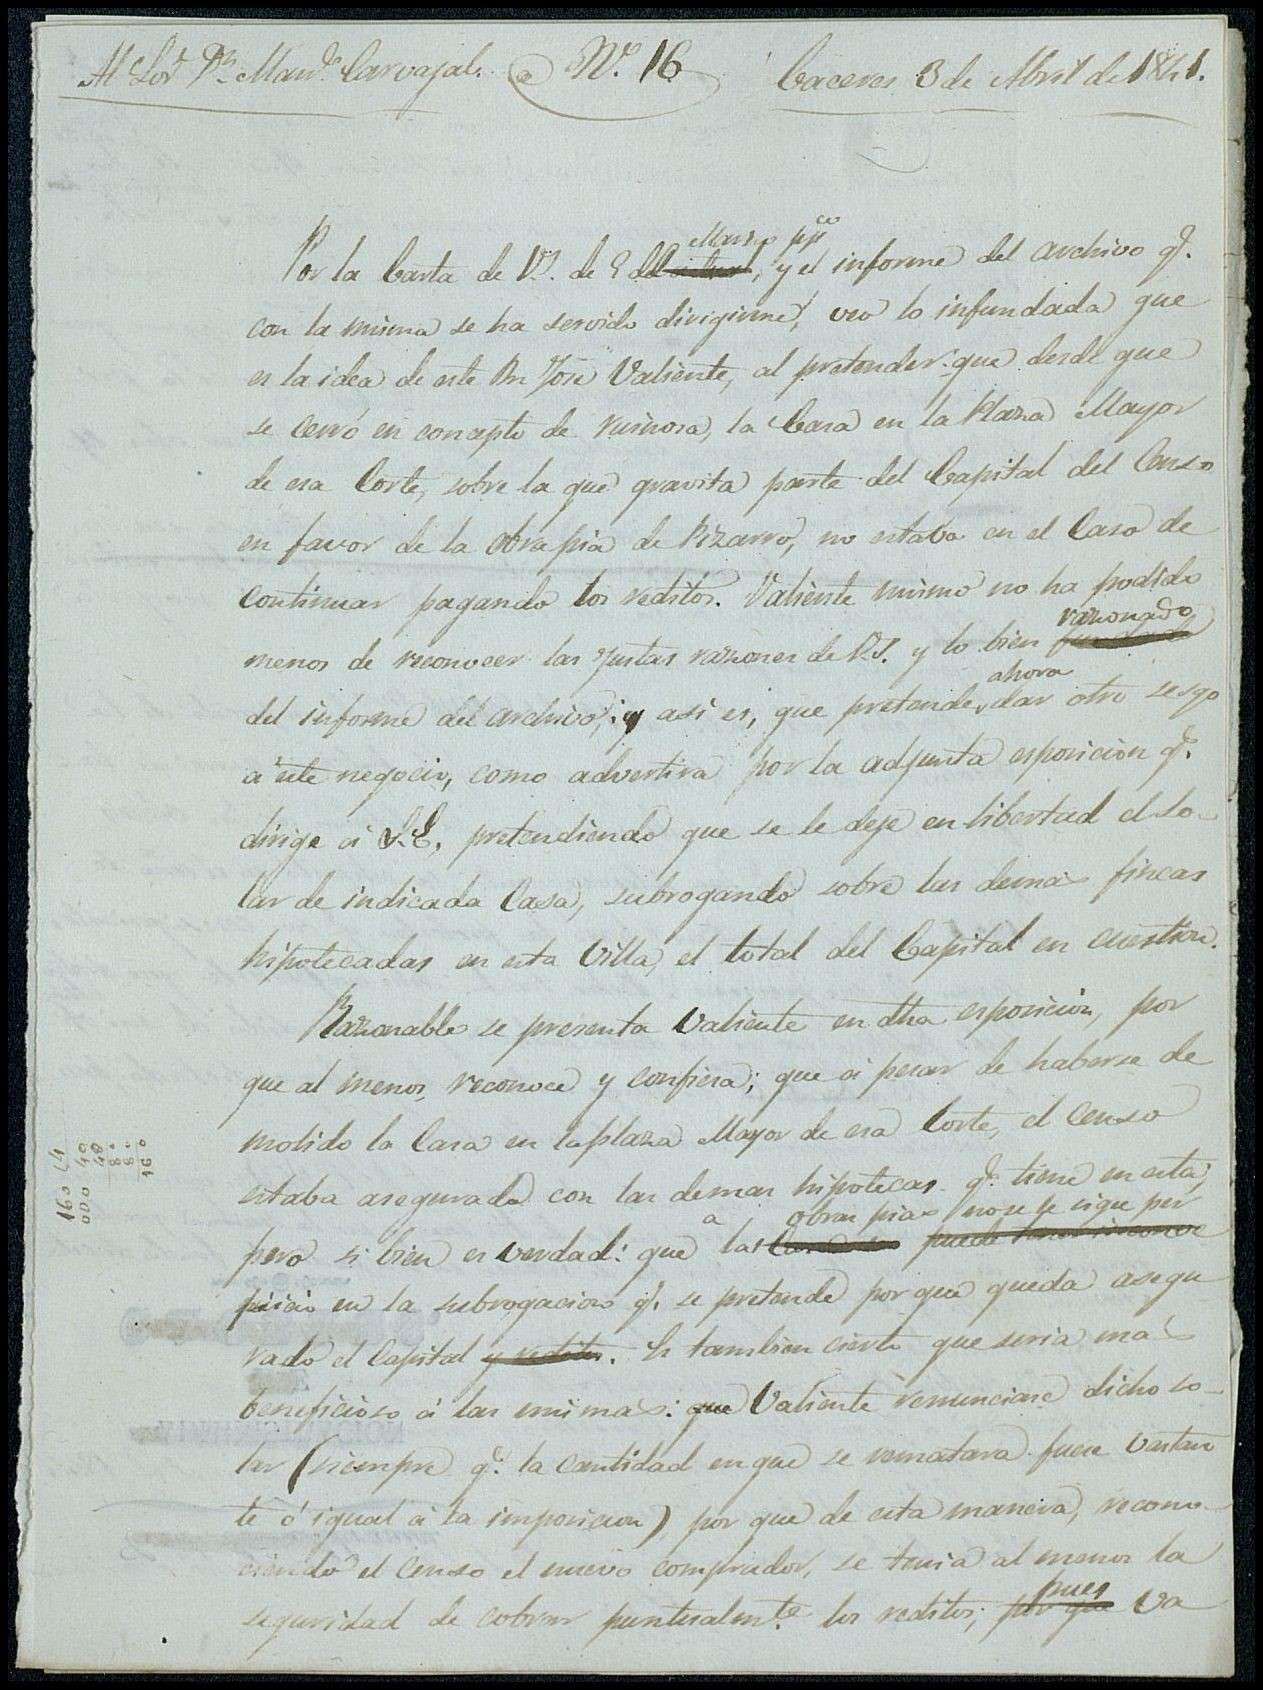 Al Sor. Dn. Manl. Carvajal. Nº. 16 Caceres 3 de Abril de 1841.
Marzo ppdo
Por la Carta de V.S. de 2 del, y el informe del archivo q.
con la misma se ha servido dirigirme, veo lo infundada que
es la idea de este Dn. José Valiente, al pretender: que desde que
se cerró en concepto de ruinosa, la Casa en la Plaza Mayor
de esa Corte, sobre la que gravita parte del Capital del Censo
en favor de la obra pia de Pizarro, no estaba en el Caso de
continuar pagando los reditos. Valiente mismo no ha podido
razonado
menos de reconocer las justas razones de V.S. y lo bien
ahora
del informe del archivo; y asi es, que pretende, dar otro sesgo
á este negocio, como advertira por la adjunta esposicion q.
dirige á S.E. pretendiendo que se le deje en libertad el so-
lar de indicada Casa, subrogando sobre las demas fincas
hipotecadas en esta Villa, el total del Capital en cuestion.
Razonable se presenta Valiente en dha esposicion, por
que al menos, reconoce y confiesa; que á pesar de haberse de
molido la Casa en la plaza Mayor de esa Corte, el Censo
estaba asegurado con las demas hipotecas q. tiene en esta;
a obras pias no se le sigue per
pero si bien es verdad: que las puede tener inconve
juicio en la subrogacion q. se pretende por que queda asegu
rado el Capital y reditos. Es tambien cierto que seria mas
beneficioso á las mismas: que Valiente renunciase dicho so-
lar (siempre q. la cantidad en que se rematara fuese bastan
te ó igual á la imposicion) por que de esta manera, recono-
ciendo el Censo el nuevo comprador, se tenia al menos la
seguridad de cobrar puntualmte. los reditos;
pues
por que Va
160 L4
000 40
40
8.
8.
160